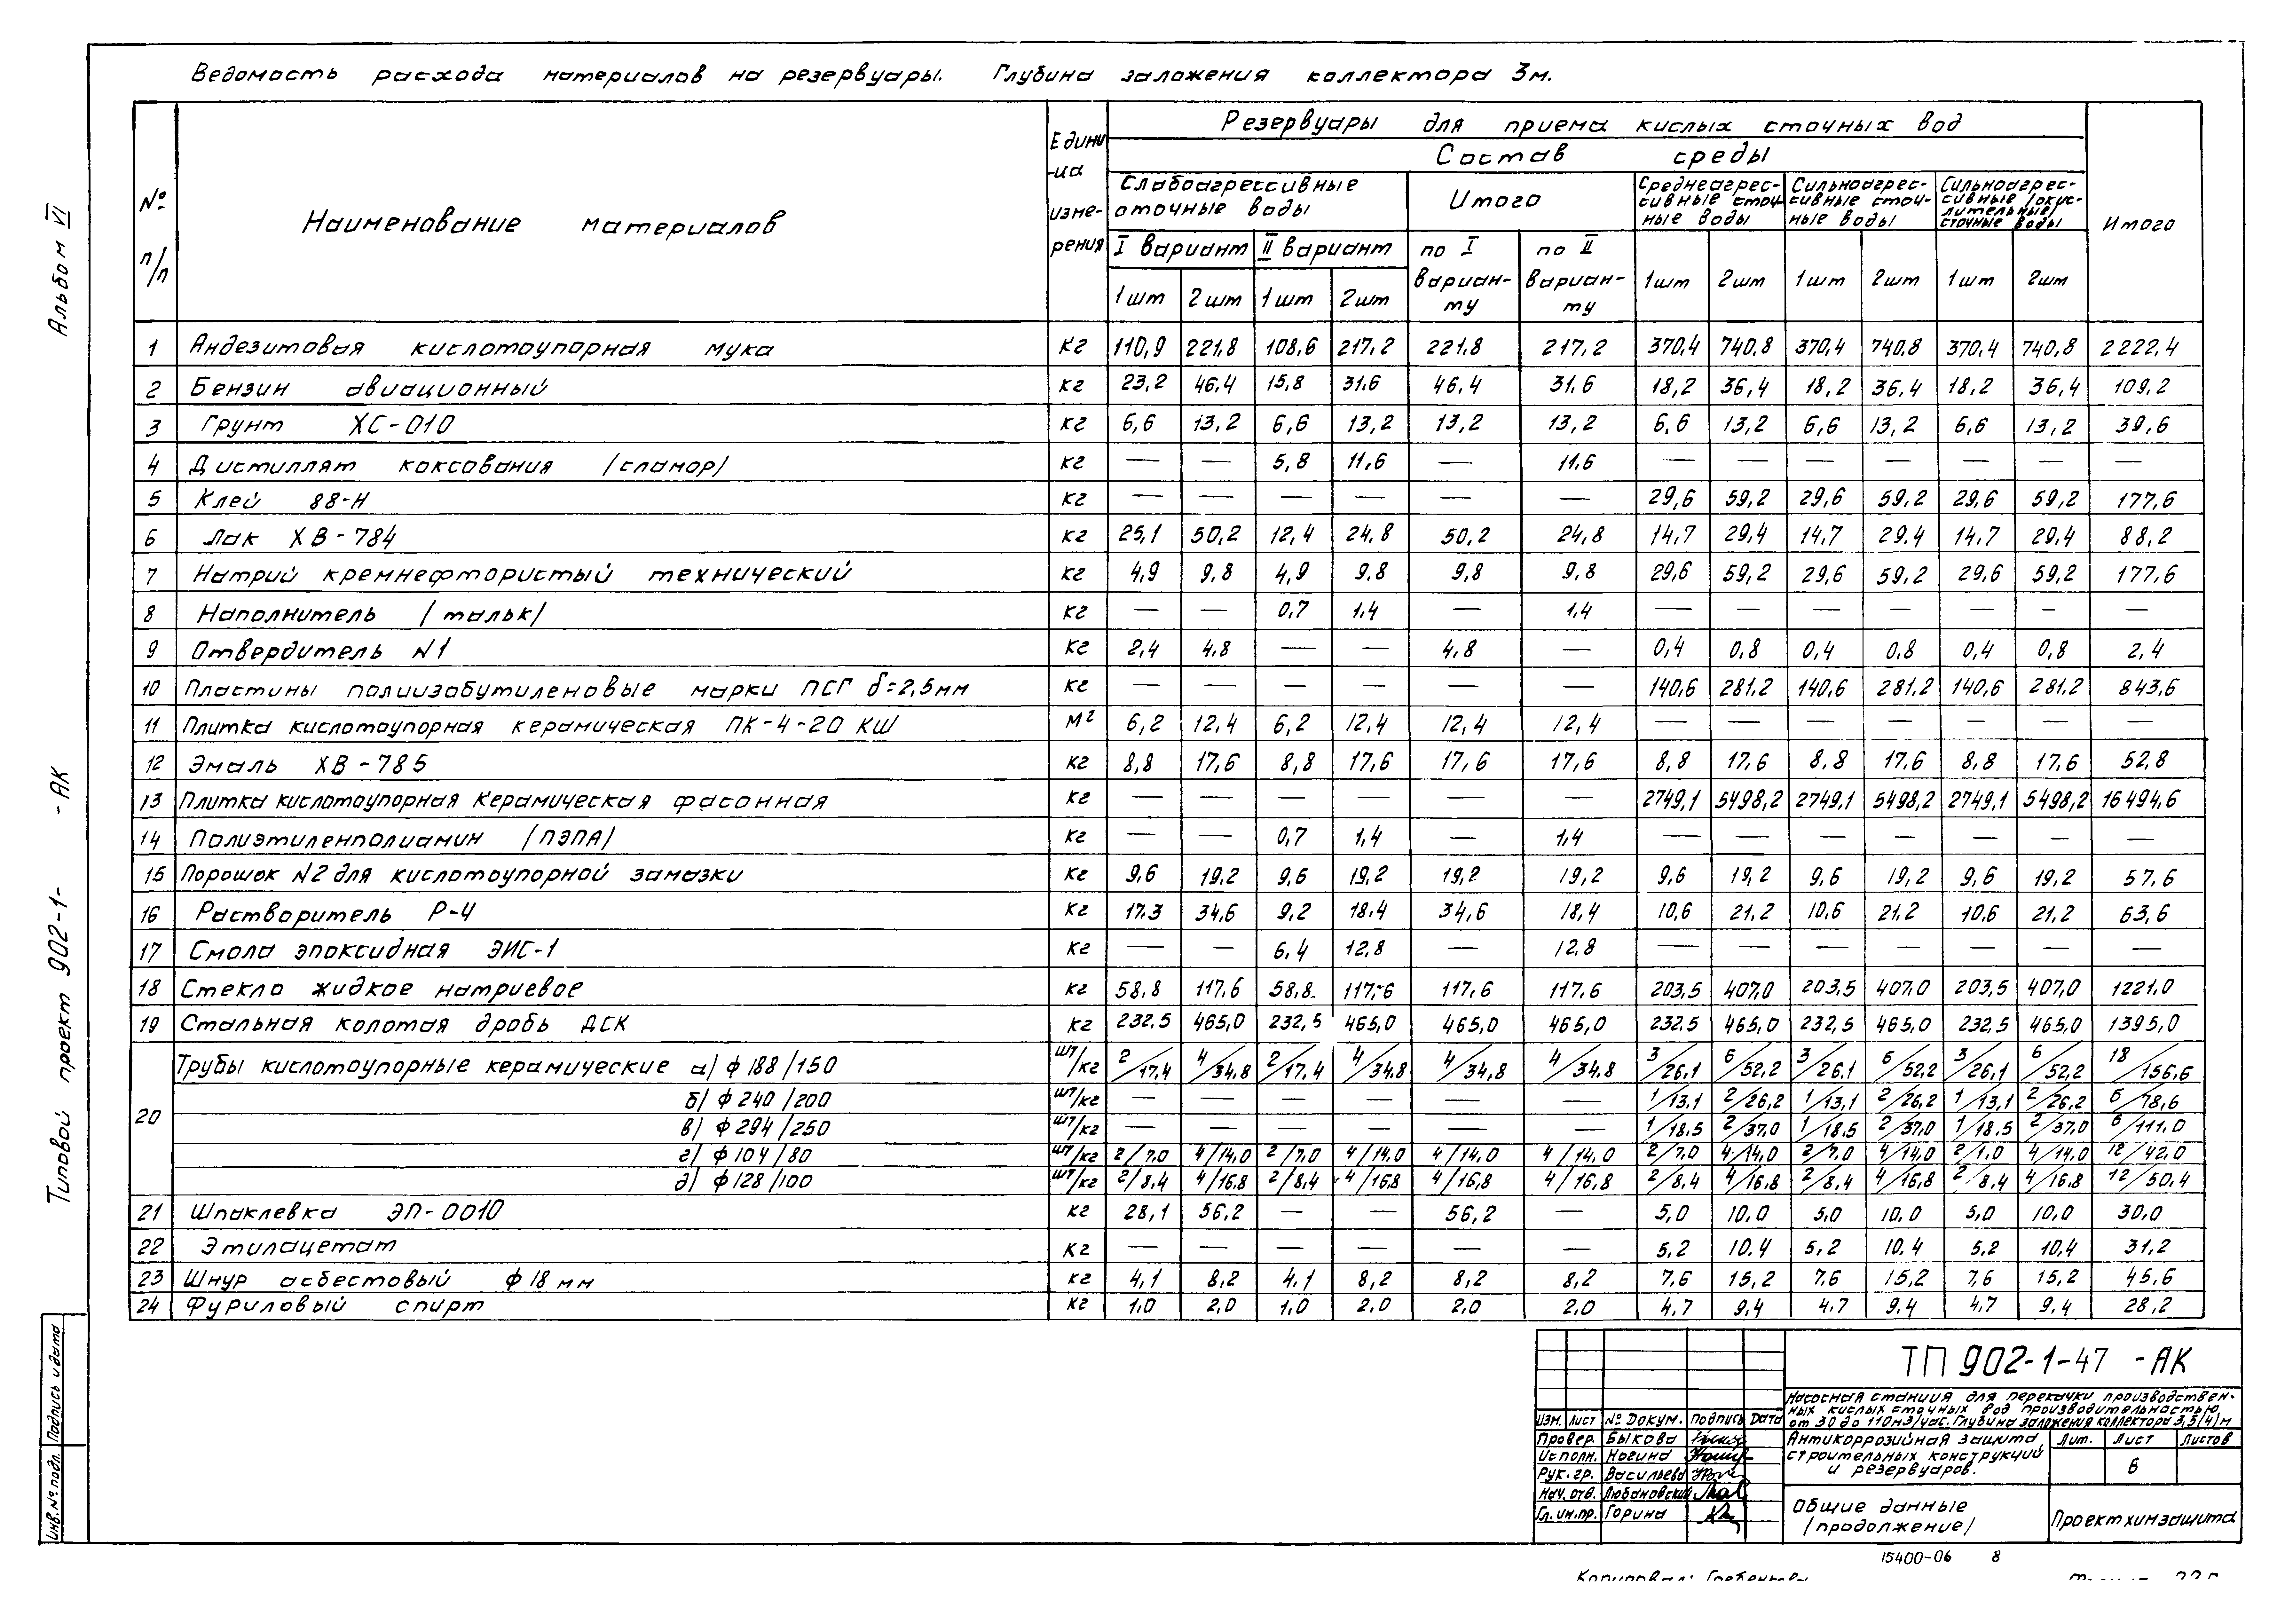 Ведомость расхода материалов на резервуары. Глубина заложения коллектора 3м.
Альбом VI
Типовой проект 902-1- -АК
№ п/п | Наименование материалов | Едини-ца изме-рения | Резервуары для приема кислых сточных вод | Итого
Состав среды
Слабоагрессивные сточные воды | Итого | Среднеагрес-сивные сточ-ные воды | Сильноагрес-сивные сточ-ные воды | Сильноагрес-сивные /окис-лительные/ сточные воды
I вариант | II вариант | по I вариан-ту | по II вариан-ту
1шт | 2шт | 1шт | 2шт | 1шт | 2шт | 1шт | 2шт | 1шт | 2шт
1 Андезитовая кислотоупорная мука кг 110,9 221,8 108,6 217,2 221,8 217,2 370,4 740,8 370,4 740,8 370,4 740,8 2222,4
2 Бензин авиационный кг 23,2 46,4 15,8 31,6 46,4 31,6 18,2 36,4 18,2 36,4 18,2 36,4 109,2
3 Грунт ХС-010 кг 6,6 13,2 6,6 13,2 13,2 13,2 6,6 13,2 6,6 13,2 6,6 13,2 39,6
4 Дистиллят коксования /сламор/ кг — — 5,8 11,6 — 11,6 — — — — — — —
5 Клей 88-Н кг — — — — — — 29,6 59,2 29,6 59,2 29,6 59,2 177,6
6 Лак ХВ-784 кг 25,1 50,2 12,4 24,8 50,2 24,8 14,7 29,4 14,7 29,4 14,7 29,4 88,2
7 Натрий кремнефтористый технический кг 4,9 9,8 4,9 9,8 9,8 9,8 29,6 59,2 29,6 59,2 29,6 59,2 177,6
8 Наполнитель /тальк/ кг — — 0,7 1,4 — 1,4 — — — — — — —
9 Отвердитель N1 кг 2,4 4,8 — — 4,8 — 0,4 0,8 0,4 0,8 0,4 0,8 2,4
10 Пластины полиизобутиленовые марки ПСГ δ=2,5мм кг — — — — — — 140,6 281,2 140,6 281,2 140,6 281,2 843,6
11 Плитка кислотоупорная керамическая ПК-4-20 КШ м² 6,2 12,4 6,2 12,4 12,4 12,4 — — — — — — —
12 Эмаль ХВ-785 кг 8,8 17,6 8,8 17,6 17,6 17,6 8,8 17,6 8,8 17,6 8,8 17,6 52,8
13 Плитка кислотоупорная керамическая фасонная кг — — — — — — 2749,1 5498,2 2749,1 5498,2 2749,1 5498,2 16494,6
14 Полиэтиленполиамин /ПЭПА/ кг — — 0,7 1,4 — 1,4 — — — — — — —
15 Порошок N2 для кислотоупорной замазки кг 9,6 19,2 9,6 19,2 19,2 19,2 9,6 19,2 9,6 19,2 9,6 19,2 57,6
16 Растворитель Р-4 кг 17,3 34,6 9,2 18,4 34,6 18,4 10,6 21,2 10,6 21,2 10,6 21,2 63,6
17 Смола эпоксидная ЭИС-1 кг — — 6,4 12,8 — 12,8 — — — — — — —
18 Стекло жидкое натриевое кг 58,8 117,6 58,8 117,6 117,6 117,6 203,5 407,0 203,5 407,0 203,5 407,0 1221,0
19 Стальная колотая дробь ДСК кг 232,5 465,0 232,5 465,0 465,0 465,0 232,5 465,0 232,5 465,0 232,5 465,0 1395,0
20 Трубы кислотоупорные керамические а) ф188/150 шт/кг 2/17,4 4/34,8 2/17,4 4/34,8 4/34,8 4/34,8 3/26,1 6/52,2 3/26,1 6/52,2 3/26,1 6/52,2 18/156,6
б) ф240/200 шт/кг — — — — — — 1/13,1 2/26,2 1/13,1 2/26,2 1/13,1 2/26,2 6/78,6
в) ф294/250 шт/кг — — — — — — 1/18,5 2/37,0 1/18,5 2/37,0 1/18,5 2/37,0 6/111,0
г) ф104/80 шт/кг 2/7,0 4/14,0 2/7,0 4/14,0 4/14,0 4/14,0 2/7,0 4/14,0 2/7,0 4/14,0 2/7,0 4/14,0 12/42,0
д) ф128/100 шт/кг 2/8,4 4/16,8 2/8,4 4/16,8 4/16,8 4/16,8 2/8,4 4/16,8 2/8,4 4/16,8 2/8,4 4/16,8 12/50,4
21 Шпаклевка ЭП-0010 кг 28,1 56,2 — — 56,2 — 5,0 10,0 5,0 10,0 5,0 10,0 30,0
22 Этилацетат кг — — — — — — 5,2 10,4 5,2 10,4 5,2 10,4 31,2
23 Шнур асбестовый ф18мм кг 4,1 8,2 4,1 8,2 8,2 8,2 7,6 15,2 7,6 15,2 7,6 15,2 45,6
24 Фуриловый спирт кг 1,0 2,0 1,0 2,0 2,0 2,0 4,7 9,4 4,7 9,4 4,7 9,4 28,2
ТП 902-1-47 -АК
Насосная станция для перекачки производствен-
ных кислых сточных вод производительностью
от 30 до 110м3/час. Глубина заложения коллектора 3,5(4)м
Изм. Лист № докум. Подпись Дата
Провер. Быкова
Исполн. Ногина
Рук. гр. Васильева
Нач. отв. Любановский
Гл. ин.пр. Горина
Антикоррозийная защита
строительных конструкций
и резервуаров.
Лит. Лист Листов
6
Общие данные
/продолжение/
Проектхимзащита
Инв.№ подл. Подпись и дата
15400-06 8
Копировал: Гребенкова